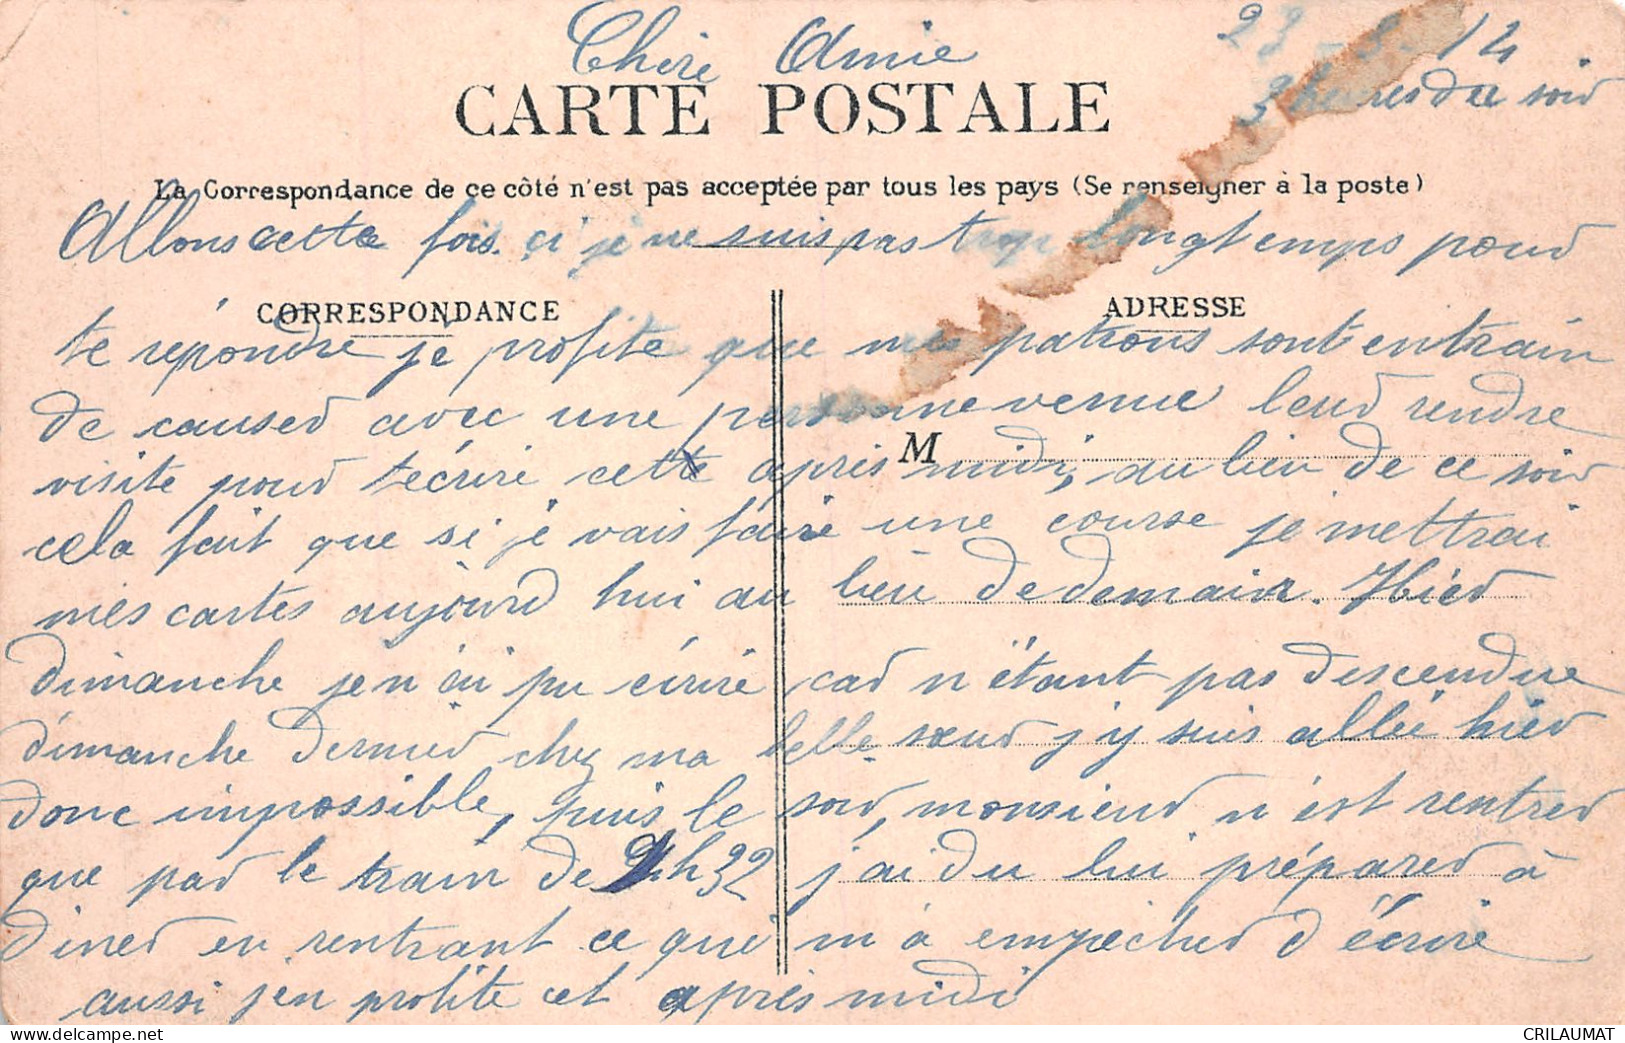 Chère Amie
23 - 3 - 14
3 heures du soir
CARTE POSTALE
La Correspondance de ce côté n'est pas acceptée par tous les pays (Se renseigner à la poste)
Allons cette fois ci je ne suis pas trop longtemps pour
CORRESPONDANCE
ADRESSE
te répondre je profite que mes patrons sont entrain
de causer avec une personne venue leur rendre
M
visite pour t'écrire cette après midi, au lieu de ce soir
cela fait que si je vais faire une course je mettrai
mes cartes aujourd hui au lieu de demain. Hier
dimanche je n'ai pu écrire car n'étant pas descendue
dimanche dernier chez ma belle sœur j'y suis allée hier
donc impossible, puis le soir, monsieur n'est rentrer
que par le train de 9h32 j'ai du lui préparer à
diner en rentrant ce qui m'a empêcher d'écrire
aussi j'en profite cet après midi
CRILAUMAT